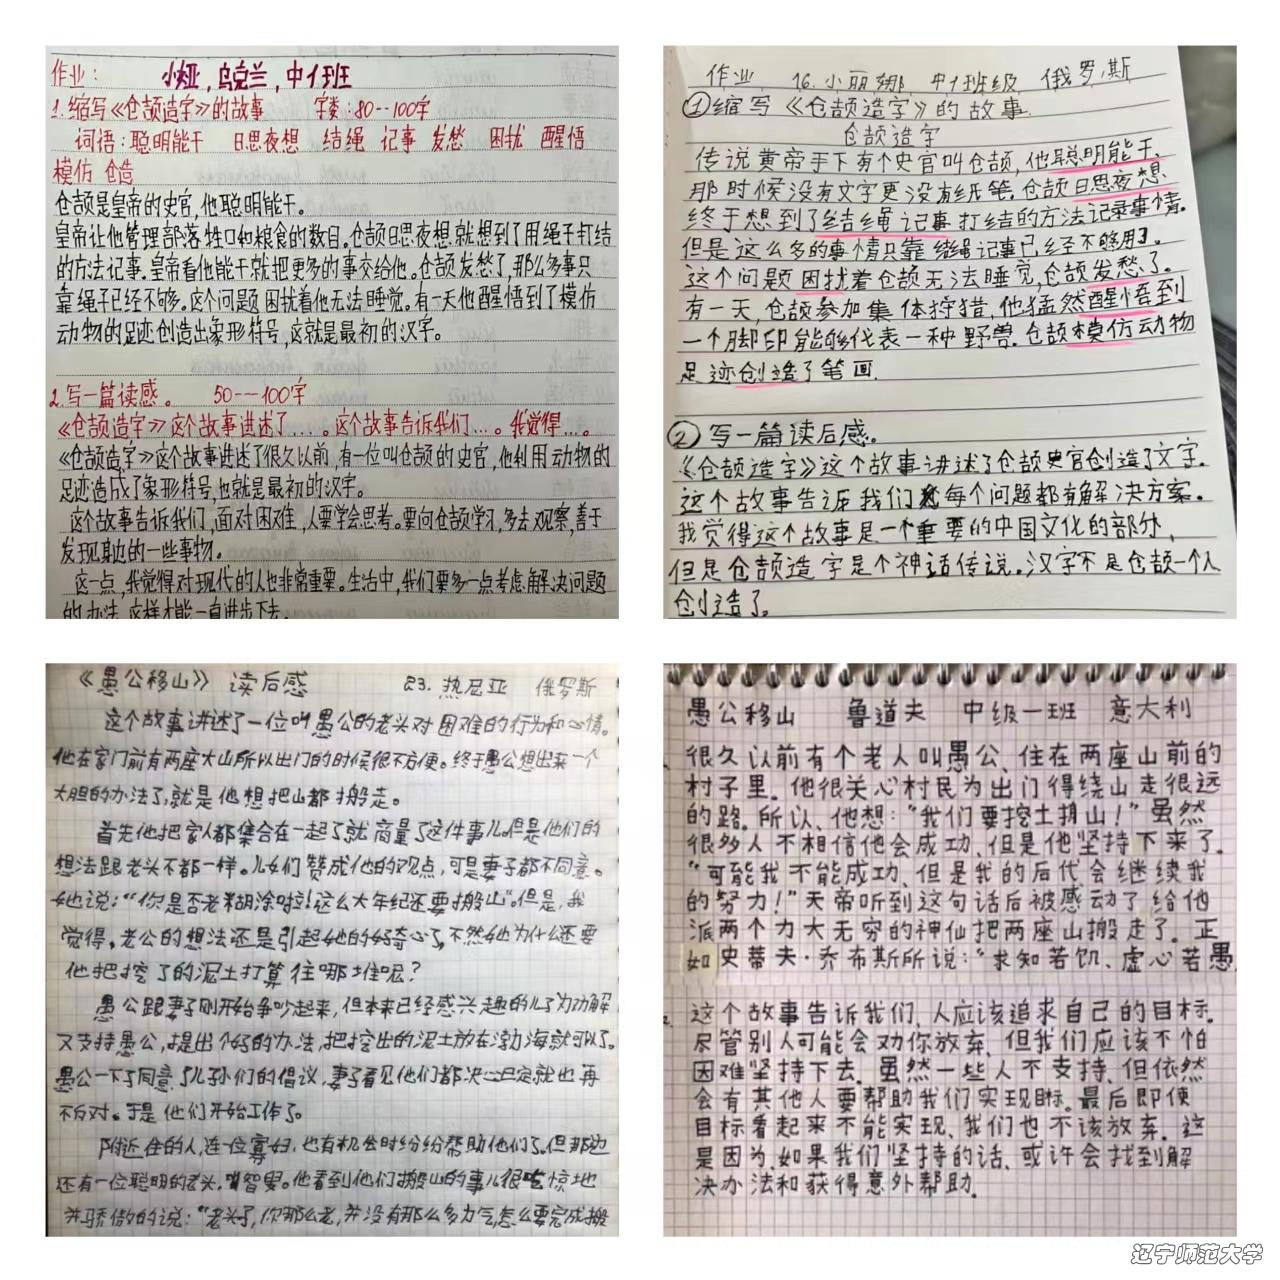 作业： 小娅，乌克兰，中1班
1.缩写《仓颉造字》的故事 字数：80--100字
词语：聪明能干 日思夜想 结绳 记事 发愁 困扰 醒悟
模仿 仓造
仓颉是皇帝的史官，他聪明能干。
皇帝让他管理部落牲口和粮食的数目。仓颉日思夜想就想到了用绳子打结
的方法记事。皇帝看他能干就把更多的事交给他。仓颉发愁了，那么多事只
靠绳子已经不够。这个问题困扰着他无法睡觉。有一天他醒悟到了模仿
动物的足迹创造出象形符号，这就是最初的汉字。
2.写一篇读感。 50---100字
《仓颉造字》这个故事讲述了...。这个故事告诉我们...。我觉得...。
《仓颉造字》这个故事讲述了很久以前，有一位叫仓颉的史官，他利用动物的
足迹造成了象形符号，也就是最初的汉字。
这个故事告诉我们，面对困难，人要学会思考。要向仓颉学习，多去观察，善于
发现身边的一些事物。
这一点，我觉得对现代的人也非常重要。生活中，我们要多一点考虑解决问题
的办法，这样才能一直进步下去。
作业 16.小丽娜，中1班级 俄罗斯
①缩写《仓颉造字》的故事.
仓颉造字
传说黄帝手下有个史官叫仓颉，他聪明能干，
那时候没有文字更没有纸笔.仓颉日思夜想
终于想到了结绳记事打结的方法记录事情。
但是这么多的事情只靠结绳记事已经不够用了。
这个问题困扰着仓颉无法睡觉，仓颉发愁了。
有一天，仓颉参加集体狩猎，他猛然醒悟到
一个脚印能够代表一种野兽.仓颉模仿动物
足迹创造了笔画.
②写一篇读后感。
《仓颉造字》这个故事讲述了仓颉史官创造了文字.
这个故事告诉我们每个问题都有解决方案。
我觉得这个故事是一个重要的中国文化的部分，
但是仓颉造字是个神话传说。汉字不是仓颉一个人
创造了。
《愚公移山》 读后感 23.热尼亚 俄罗斯
这个故事讲述了一位叫愚公的老头对困难的行为和心情。
他在家门前有两座大山所以出门的时候很不方便。终于愚公想出来一个
大胆的办法了，就是他想把山都搬走。
首先他把家人都集合在一起了就商量了这件事儿。但是他们的
想法跟老头不都一样。儿女们赞成他的观点，可是妻子都不同意。
她说：“你是否老糊涂啦！这么大年纪还要搬山”。但是，我
觉得，老公的想法还是引起她的好奇心了，不然她为什么还要
他把挖了的泥土打算往哪堆呢？
愚公跟妻子刚开始争吵起来，但本来已经感兴趣的儿子为劝解
又支持愚公，提出个好的办法，把挖出的泥土放在渤海就可以了。
愚公一下子同意了儿孙们的倡议，妻子看见他们都决心已定就也再
不反对。于是他们开始工作了。
附近住的人，连一位寡妇，也有机会时纷纷帮助他们了。但那边
还有一位聪明的老头，叫智叟。他看到他们搬山的事儿很吃惊地
并骄傲的说：“老头了，你那么老，并没有那么多力气，怎么要完成搬
愚公移山 鲁道夫 中级一班 意大利
很久以前有个老人叫愚公、住在两座山前的
村子里.他很关心村民为出门得绕山走很远
的路.所以、他想：“我们要挖土搬山！”虽然
很多人不相信他会成功、但是他坚持下来了.
“可能我不能成功、但是我的后代会继续我
的努力！”天帝听到这句话后被感动了、给他
派两个力大无穷的神仙把两座山搬走了.正
如史蒂夫·乔布斯所说：“求知若饥、虚心若愚.
这个故事告诉我们、人应该追求自己的目标.
尽管别人可能会劝你放弃、但我们应该不怕
困难坚持下去.虽然一些人不支持、但依然
会有其他人要帮助我们实现目标.最后即使
目标看起来不能实现、我们也不该放弃.这
是因为、如果我们坚持的话、或许会找到解
决办法和获得意外帮助.
辽宁师范大学